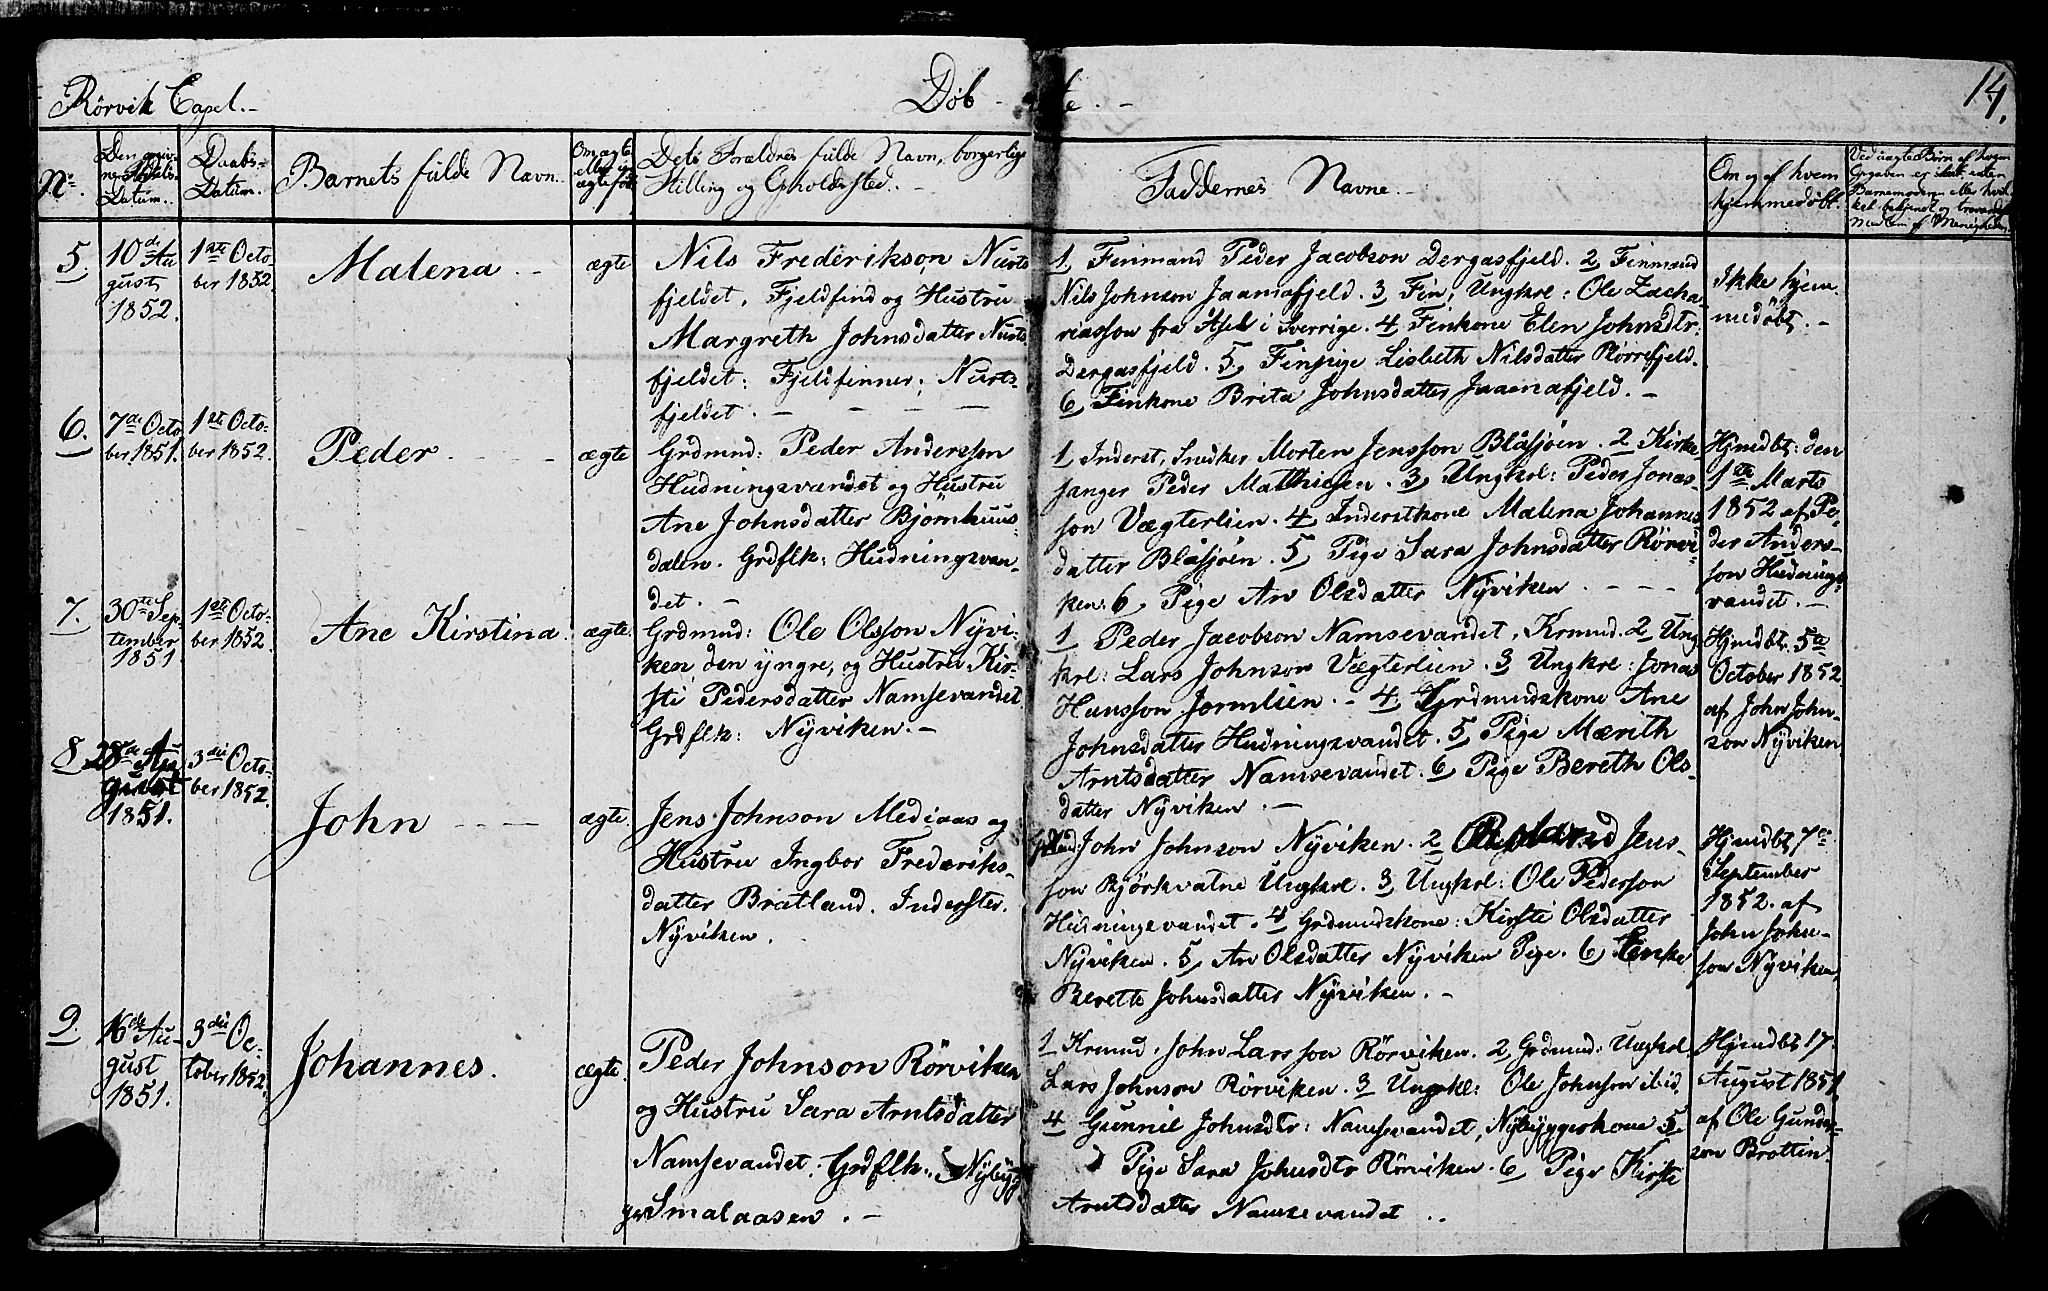 Rørvik Capel.-
Døb - te. -
14.
No.
Den opgiv-
ne Fødsels-
Datum.
Daabs-
Datum.
Barnets fulde Navn.
Om ægte
eller u-
ægte fød
Dets Forældres fulde Navn, borgerlige
Stilling og Opholdssted.-
Faddernes Navne.-
Om og af hvem
hjemmedøbt.
Ved uægte Børn af hvem
Opgaven er skeet, enten
Barnemoderen eller hvil-
ket bekjendt og troværdigt
Medlem af Menigheden
5
10de Au
gust
1852.
1ste Octo
ber 1852.
Malena -
ægte
Nils Frederikson Nurts
fjeldet, Fjeldfind og Hustru
Margreth Johnsdatter Nurts
fjeldet: Fjeldfinner; Nurts-
fjeldet. - - - -
1, Finmand Peder Jacobson Dergasfjeld. 2, Finmand
Nils Johnson Jaamafjeld. 3, Fin, Ungkrl: Ole Zacha
riasson fra Åsel i Sverrige. 4, Finkone Elen Johnsdtr.
Dergasfjeld. 5, Finpige Lisbeth Nilsdatter Rørrefjeld.
6, Finkone Brita Johnsdatter Jaamafjeld. -
Ikke hjem-
medøbt. -
6.
7de Octo
ber 1851.
1ste Octo-
ber 1852.
Peder. - - -
ægte
Grdmnd: Peder Andersson
Hudningsvandet og Hustru
Ane Johnsdatter Bjørnhuus-
dalen. Grdflk: Hudningsvan-
det. -
1 Inderst, Snedker Morten Jensson Blåsjøen. 2 Kirke
sanger Peder Mathiesen. 3, Ungkrl: Peder Jonas-
son Vægterlien. 4 Inderstkone Malena Johannes-
datter Blåsjøen. 5, Pige Sara Johnsdatter Rørvi-
ken: 6, Pige An Olsdatter Nyviken - - -
Hjmdbt: den
1ste Marts
1852 af Pe-
der Anders-
son Hudnings-
vandet. -
7.
30te Sep
tember
1851
1ste Octo-
ber 1852.
Ane Kirstina.
ægte.
Grdmnd: Ole Olsson Nyvi-
ken, den yngre, og Hustru Kir-
sti Pedersdatter Namsevandet
Grdflk: Nyviken.-
1 Peder Jacobson Namsevandet, Krmnd. 2, Ung
krl: Lars Johnson Vægterlien. 3, Ungkrl: Jonas
Hansson Jormlien. - 4, Grdmndskone Ane
Johnsdatter Hudningsvandet. 5, Pige Mærith
Arntsdatter Namsevandet. 6, Pige Bereth Ols-
datter Nyviken. -
Hjmdbt. 5te
October 1852.
af John John-
son Nyviken
8.
28de Au
gust
1851.
3die Octo-
ber 1852.
John - - -
ægte.
Jens Johnson Mediaas og
Hustru Ingbor Frederiks-
datter Bratland. Inderster.
Nyviken.
John Johnson Nyviken. 2 Jens-
son Bjørkvatne Ungkrl. 3, Ungkrl: Ole Pederson
Hudningsvandet. 4 Grdmndskone: Kirsti Olsdatter
Nyviken. 5, An Olsdatter Nyviken Pige. 6, Enke
Bereth Johnsdatter Nyviken. -
Hjmdbt 7de
September
1852. af
John John-
son Nyviken,
9.
16de Au-
gust
1851.
3die Oc-
tober 1852.
Johannes.
ægte.
Peder Johnson Rørviken
og Hustru Sara Arntsdatter
Namsevandet. Grdflk: Nybÿg
ger Smalaasen. -
1 Krmnd, John Larsson Rørviken. 2, Grdmnd: Ungkrl.
Lars Johnson Rørviken. 3 Ungkl: Ole Johnson ibid.
4 Gunnil Johnsdtr: Namsevandet, Nybyggerkone 5.
Pige Sara Johnsdtr Rørviken. 6, Pige Kirsti
Arntsdatter Namsevandet ..
Hjmdbt 17.
August 1851.
af Ole Gunder-
son Brattin.